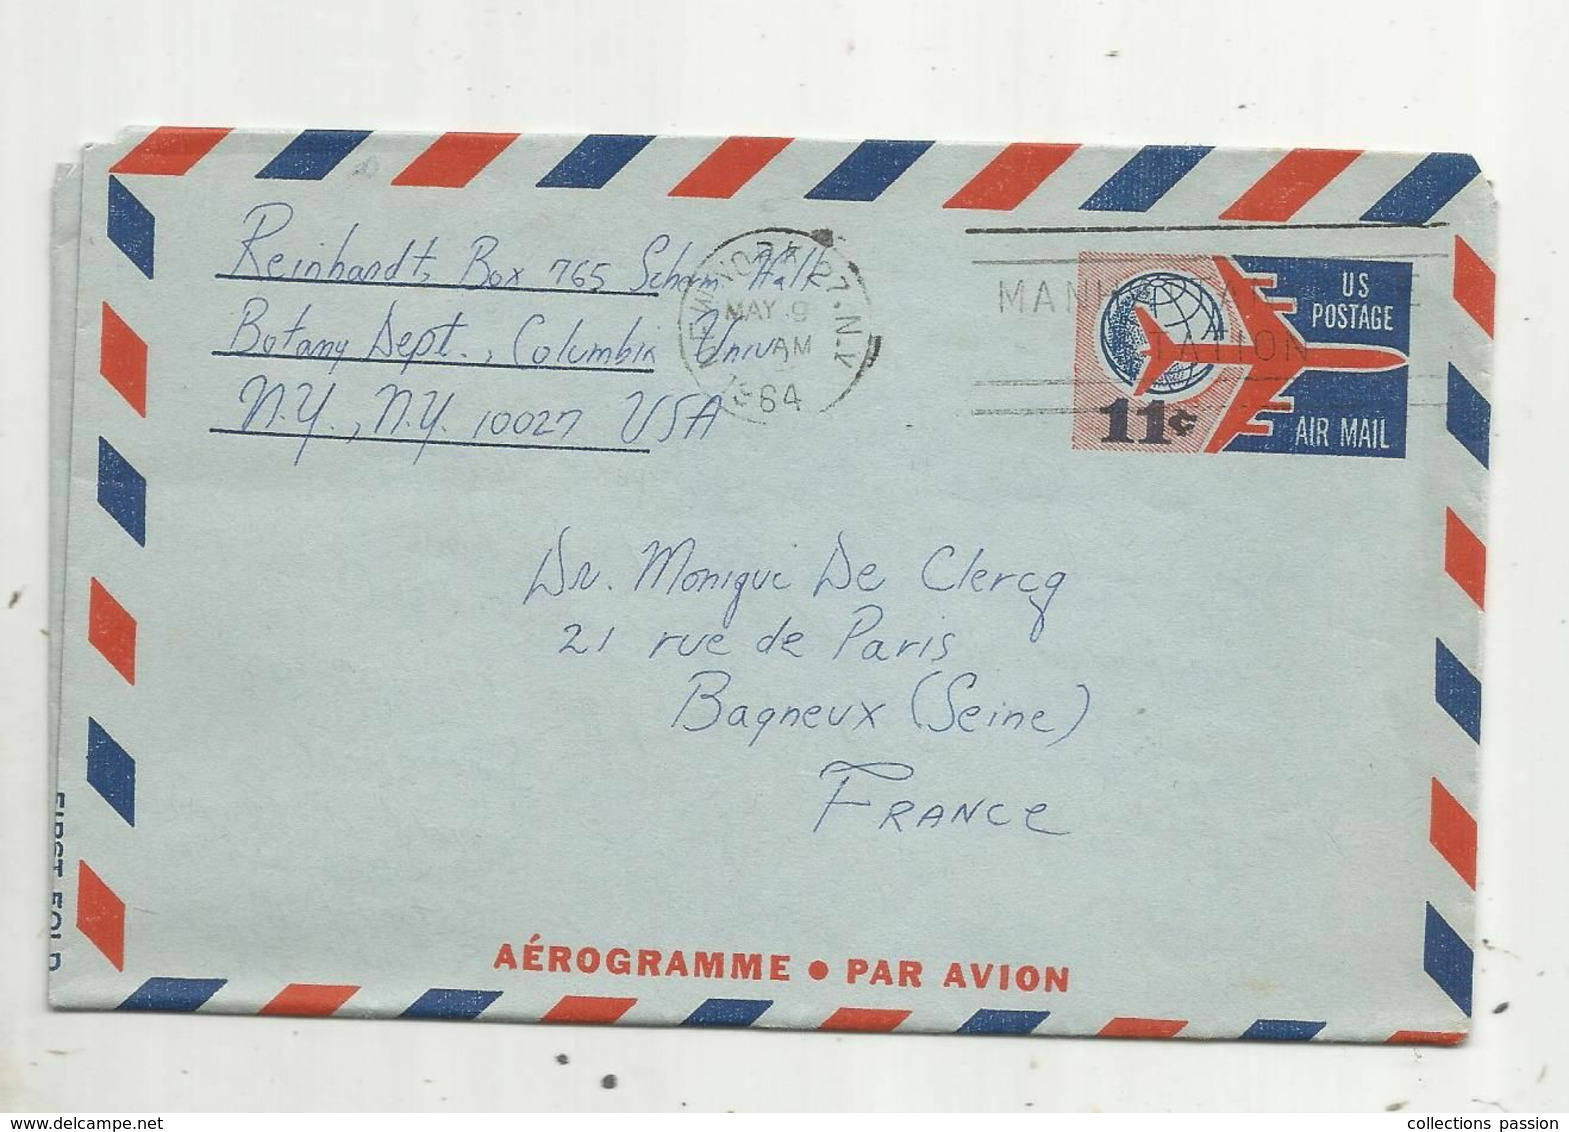 Reinhardt, Box 765 Scherm. Hall
Botany Dept., Columbia Univ.
N.Y., N.Y. 10027 USA
NEW YORK 27, N.Y.
MAY 9
AM
1964
MANHATTAN
STATION
US
POSTAGE
11¢
AIR MAIL
Dr. Monique De Clercq
21 rue de Paris
Bagneux (Seine)
FRANCE
AÉROGRAMME • PAR AVION
FIRST FOLD
www.delcampe.net
collections passion